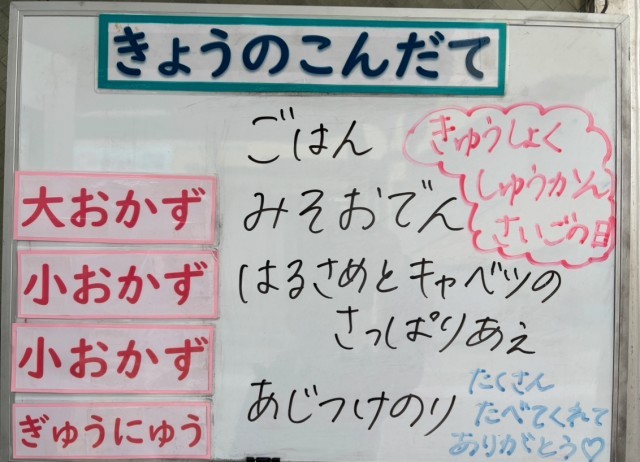 きょうのこんだて
ごはん
きゅうしょく
しゅうかん
さいごの日
大おかず
みそおでん
小おかず
はるさめとキャベツの
さっぱりあえ
小おかず
あじつけのり
ぎゅうにゅう
たくさん
たべてくれて
ありがとう♡